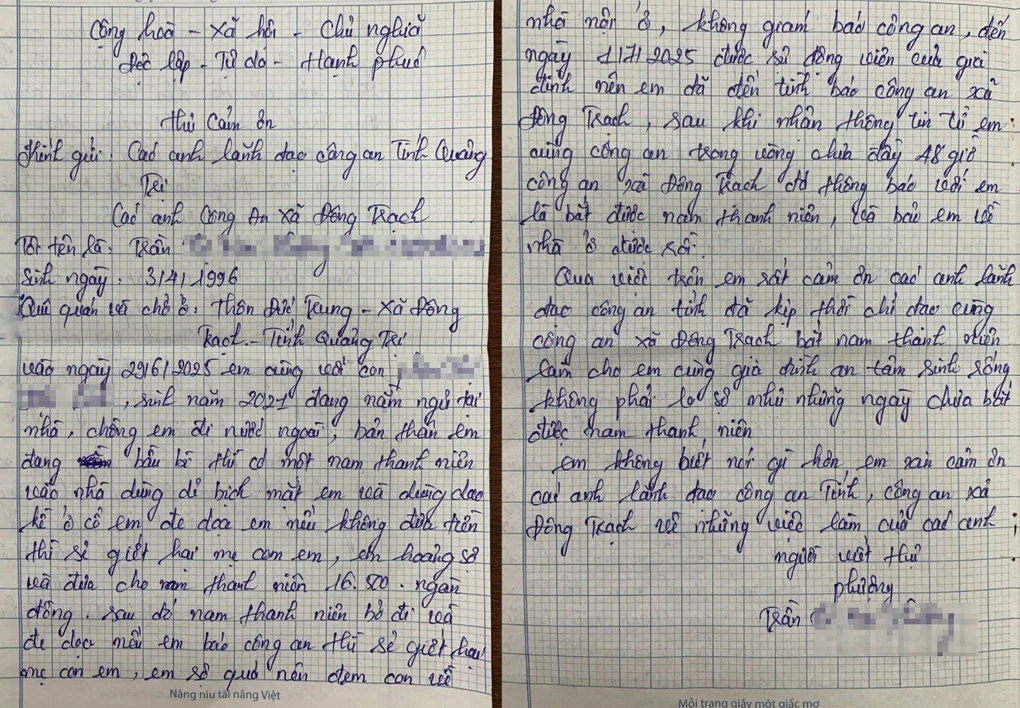 Cộng hoà - xã hôi - Chủ nghiã
Độc lập - Tự do - Hạnh phúc
Thư Cảm ơn
Kính gửi: Các anh lãnh đạo công an Tỉnh Quảng
Trị
Các anh Công An xã Đông Trạch
Tôi tên là: Trần
Sinh ngày: 3/4/1996
Quê quán và chổ ở: thôn Đức Trung - xã Đông
Trạch - Tỉnh Quảng Trị
vào ngày 29/6/2025 em cùng với con
, sinh năm 2021 đang nằm ngủ tại
nhà, chồng em đi nước ngoài, bản thân em
đang bầu bì thì có một nam thanh niên
vào nhà dùng dẻ bịch mắt em và dùng dao
kề ở cổ em đe doạ em nếu không đưa tiền
thì sẽ giết hai mẹ con em, em hoảng sợ
và đưa cho nam thanh niên 16.500. ngàn
đồng. sau đó nam thanh niên bỏ đi và
đe doạ nếu em báo công an thì sẽ giết hai
mẹ con em, em sợ quá nên đem con về
Nâng niu tài năng Việt
nhà nội ở, không giám báo công an, đến
ngày 1/7/2025 được sự động viên của gia
đình nên em đã đến trình báo công an xã
Đông Trạch, sau khi nhận thông tin từ em
cùng công an trong vòng chưa đầy 48 giờ
công an xã Đông Trạch đã thông báo với em
là bắt được nam thanh niên, và bảo em về
nhà ở được rồi.
Qua việc trên em rất cảm ơn các anh lãnh
đạo công an tỉnh đã kịp thời chỉ đạo cùng
công an xã Đông Trạch bắt nam thanh niên
làm cho em cùng gia đình an tâm sinh sống
không phải lo sợ như những ngày chưa bắt
được nam thanh niên
em không biết nói gì hơn, em xin cảm ơn
các anh lãnh đạo công an Tỉnh, công an xã
Đông Trạch về những việc làm của các anh
người viết thư
phượng
Trần
Mỗi trang giấy một giấc mơ